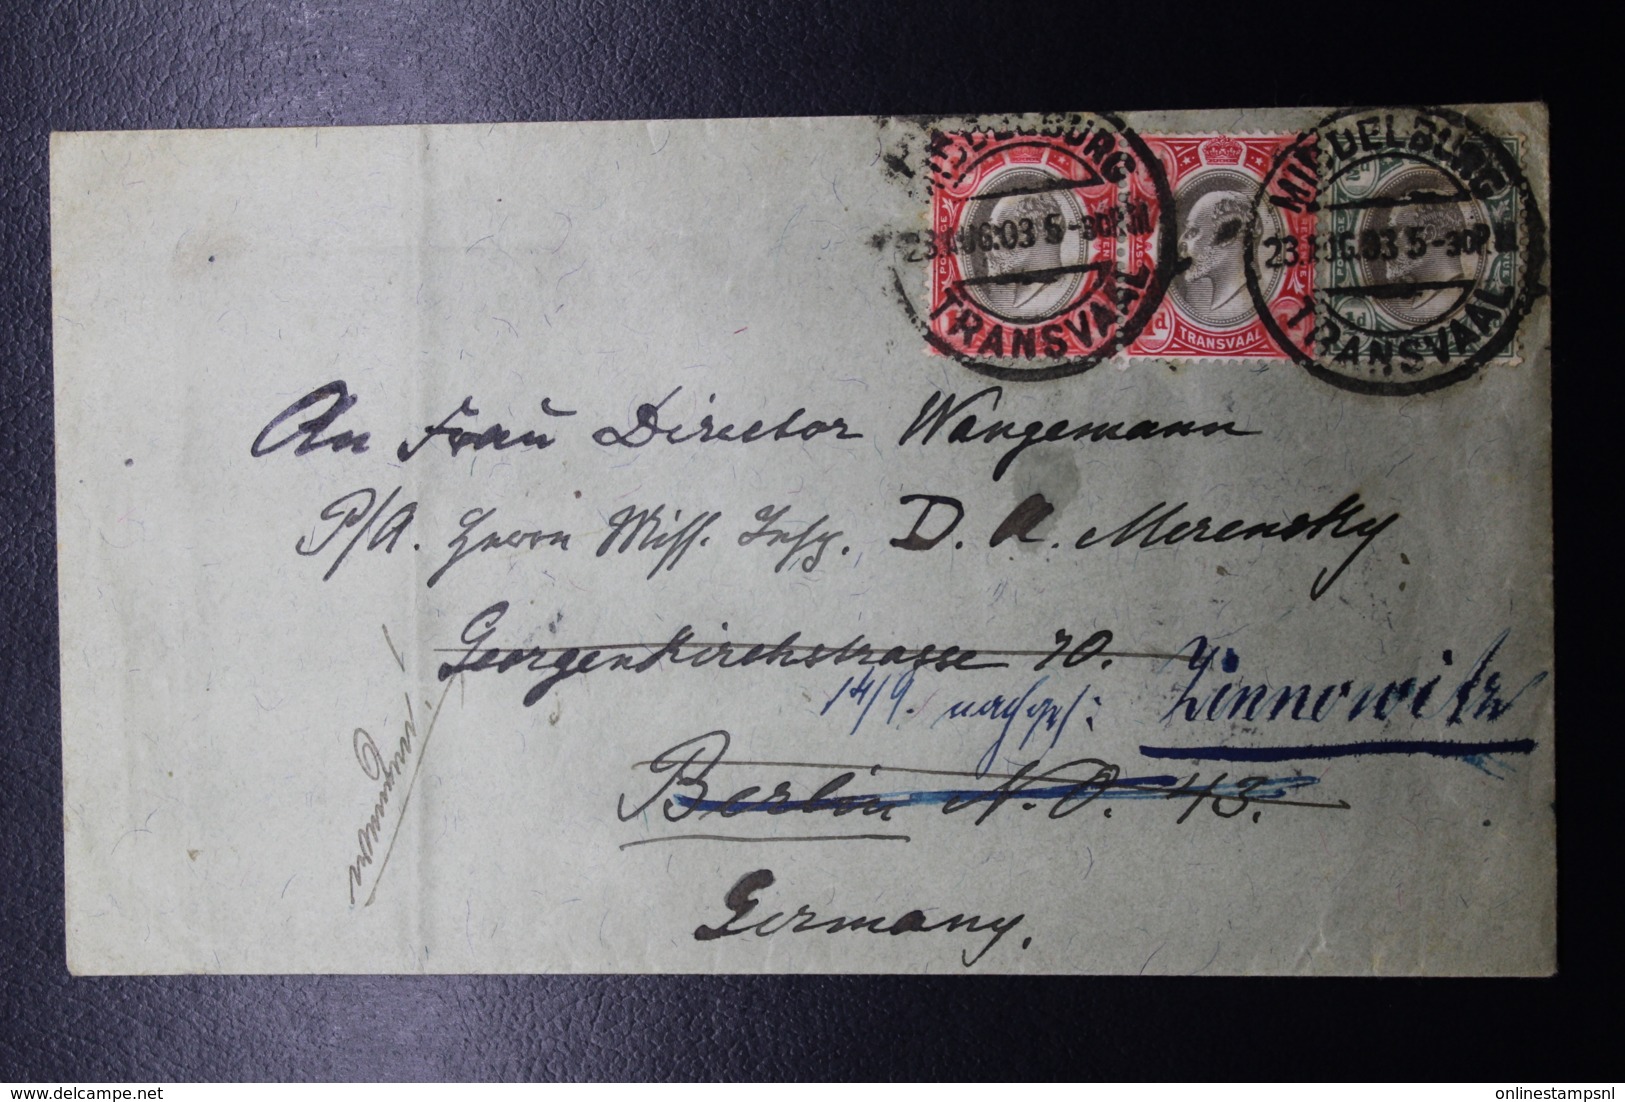 MIDDELBURG
23.AUG.03 5-30P.M
TRANSVAAL
MIDDELBURG
23.AUG.03 5-30P.M
TRANSVAAL
POSTAGE
1d TRANSVAAL
An Frau Director Wangemann
P/A. Herrn Miss. Insp. D. A. Merensky
Georgenkirchstrasse 70.
14/9. nachges: Zinnowitz
Berlin N.O. 43.
Germany.
onlinestampsnl